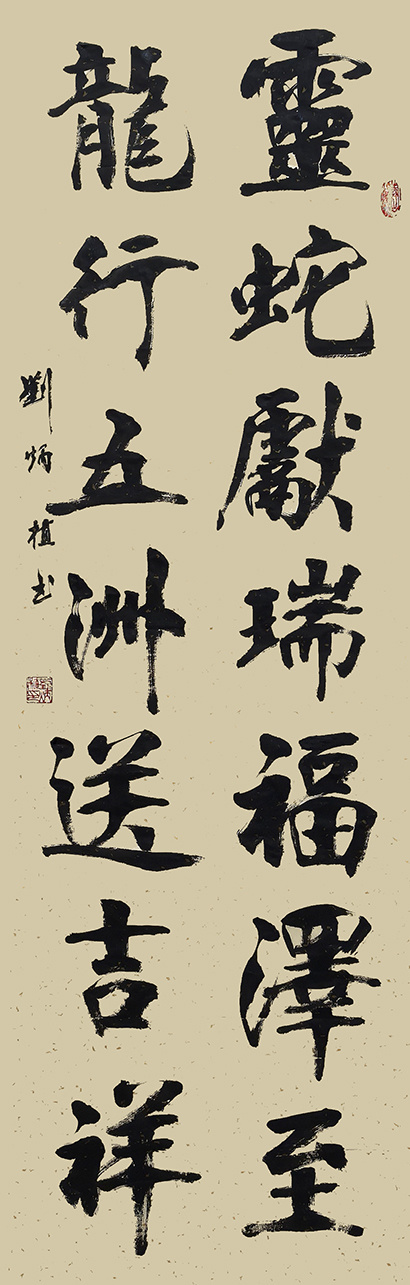 靈蛇獻瑞福澤至
龍行五洲送吉祥
劉炳植书